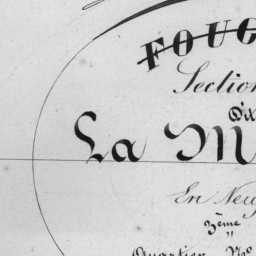 FOUG
Section
Dix
La M
En Neuf
3ème
Quartier No